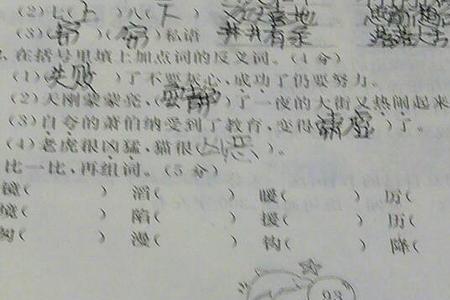 (2)七(上)八(下)
(3)(窃)(窃)私语 井井有条
在括号里填上加点词的反义词。(4分)
(1)(失败)了不要灰心,成功了仍要努力。
(2)天刚蒙蒙亮,()了一夜的大街又热闹起来
(3)自夸的萧伯纳受到了教育,变得(谦虚)了。
(4)老虎很凶猛,猫很()。
比一比,再组词。(5分)
镜( ) 滔( ) 暖( ) 厉( )
境( ) 陷( ) 援( ) 历( )
匈( ) 漫( ) 钩( ) 降(
93